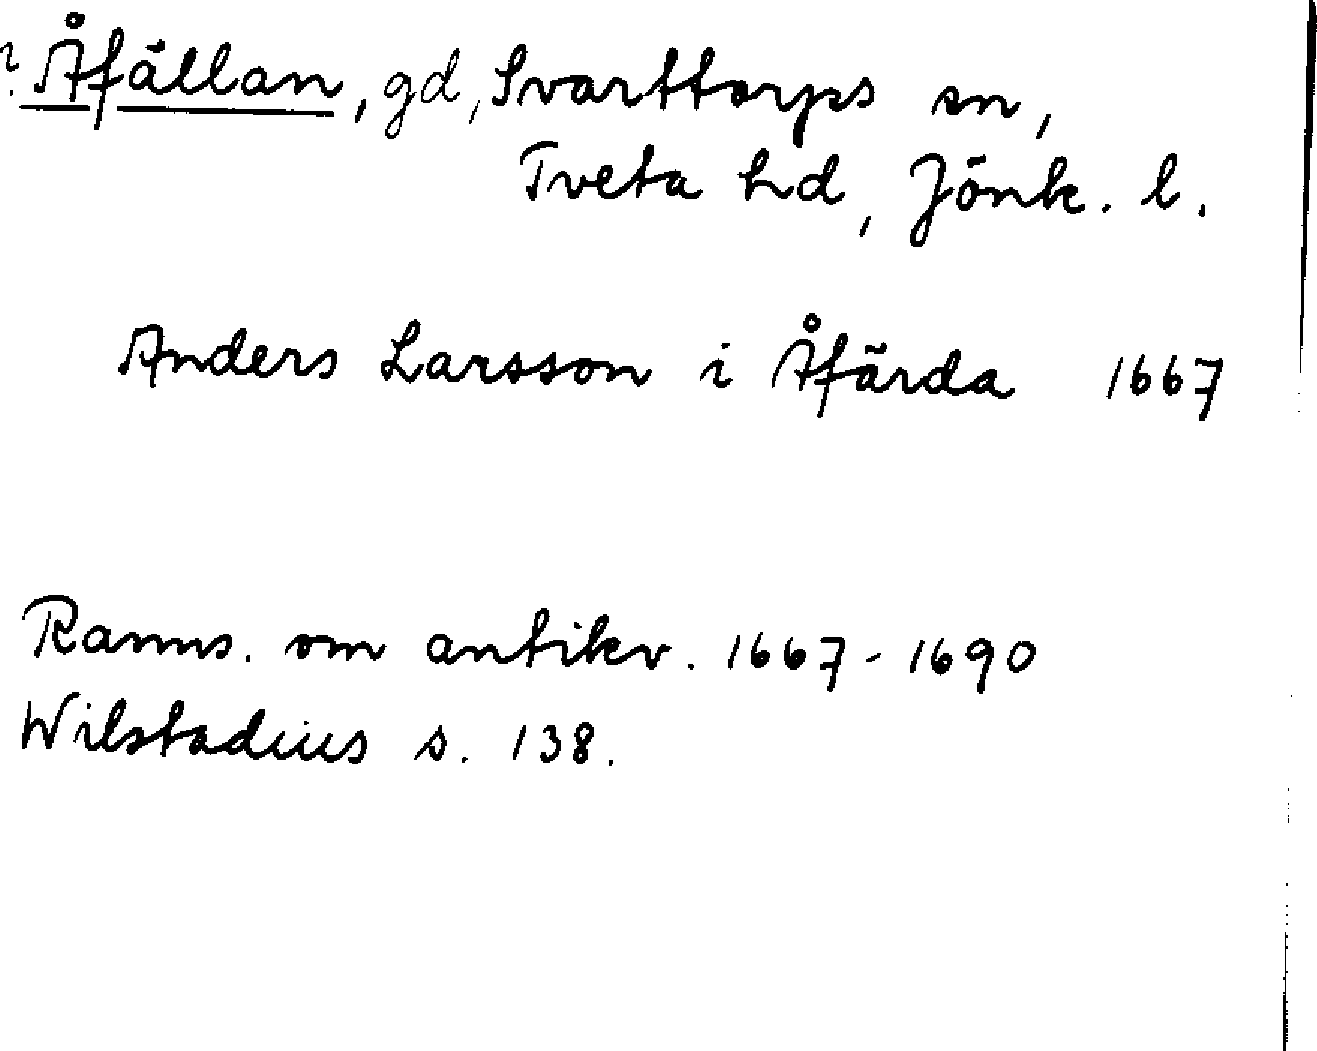 ? Åfällan, gd, Svarttorps sn,
Tveta hd, Jönk. l.
Anders Larsson i Åfärda 1667
Ranns. om antikv. 1667-1690
Wilstadius s. 138.